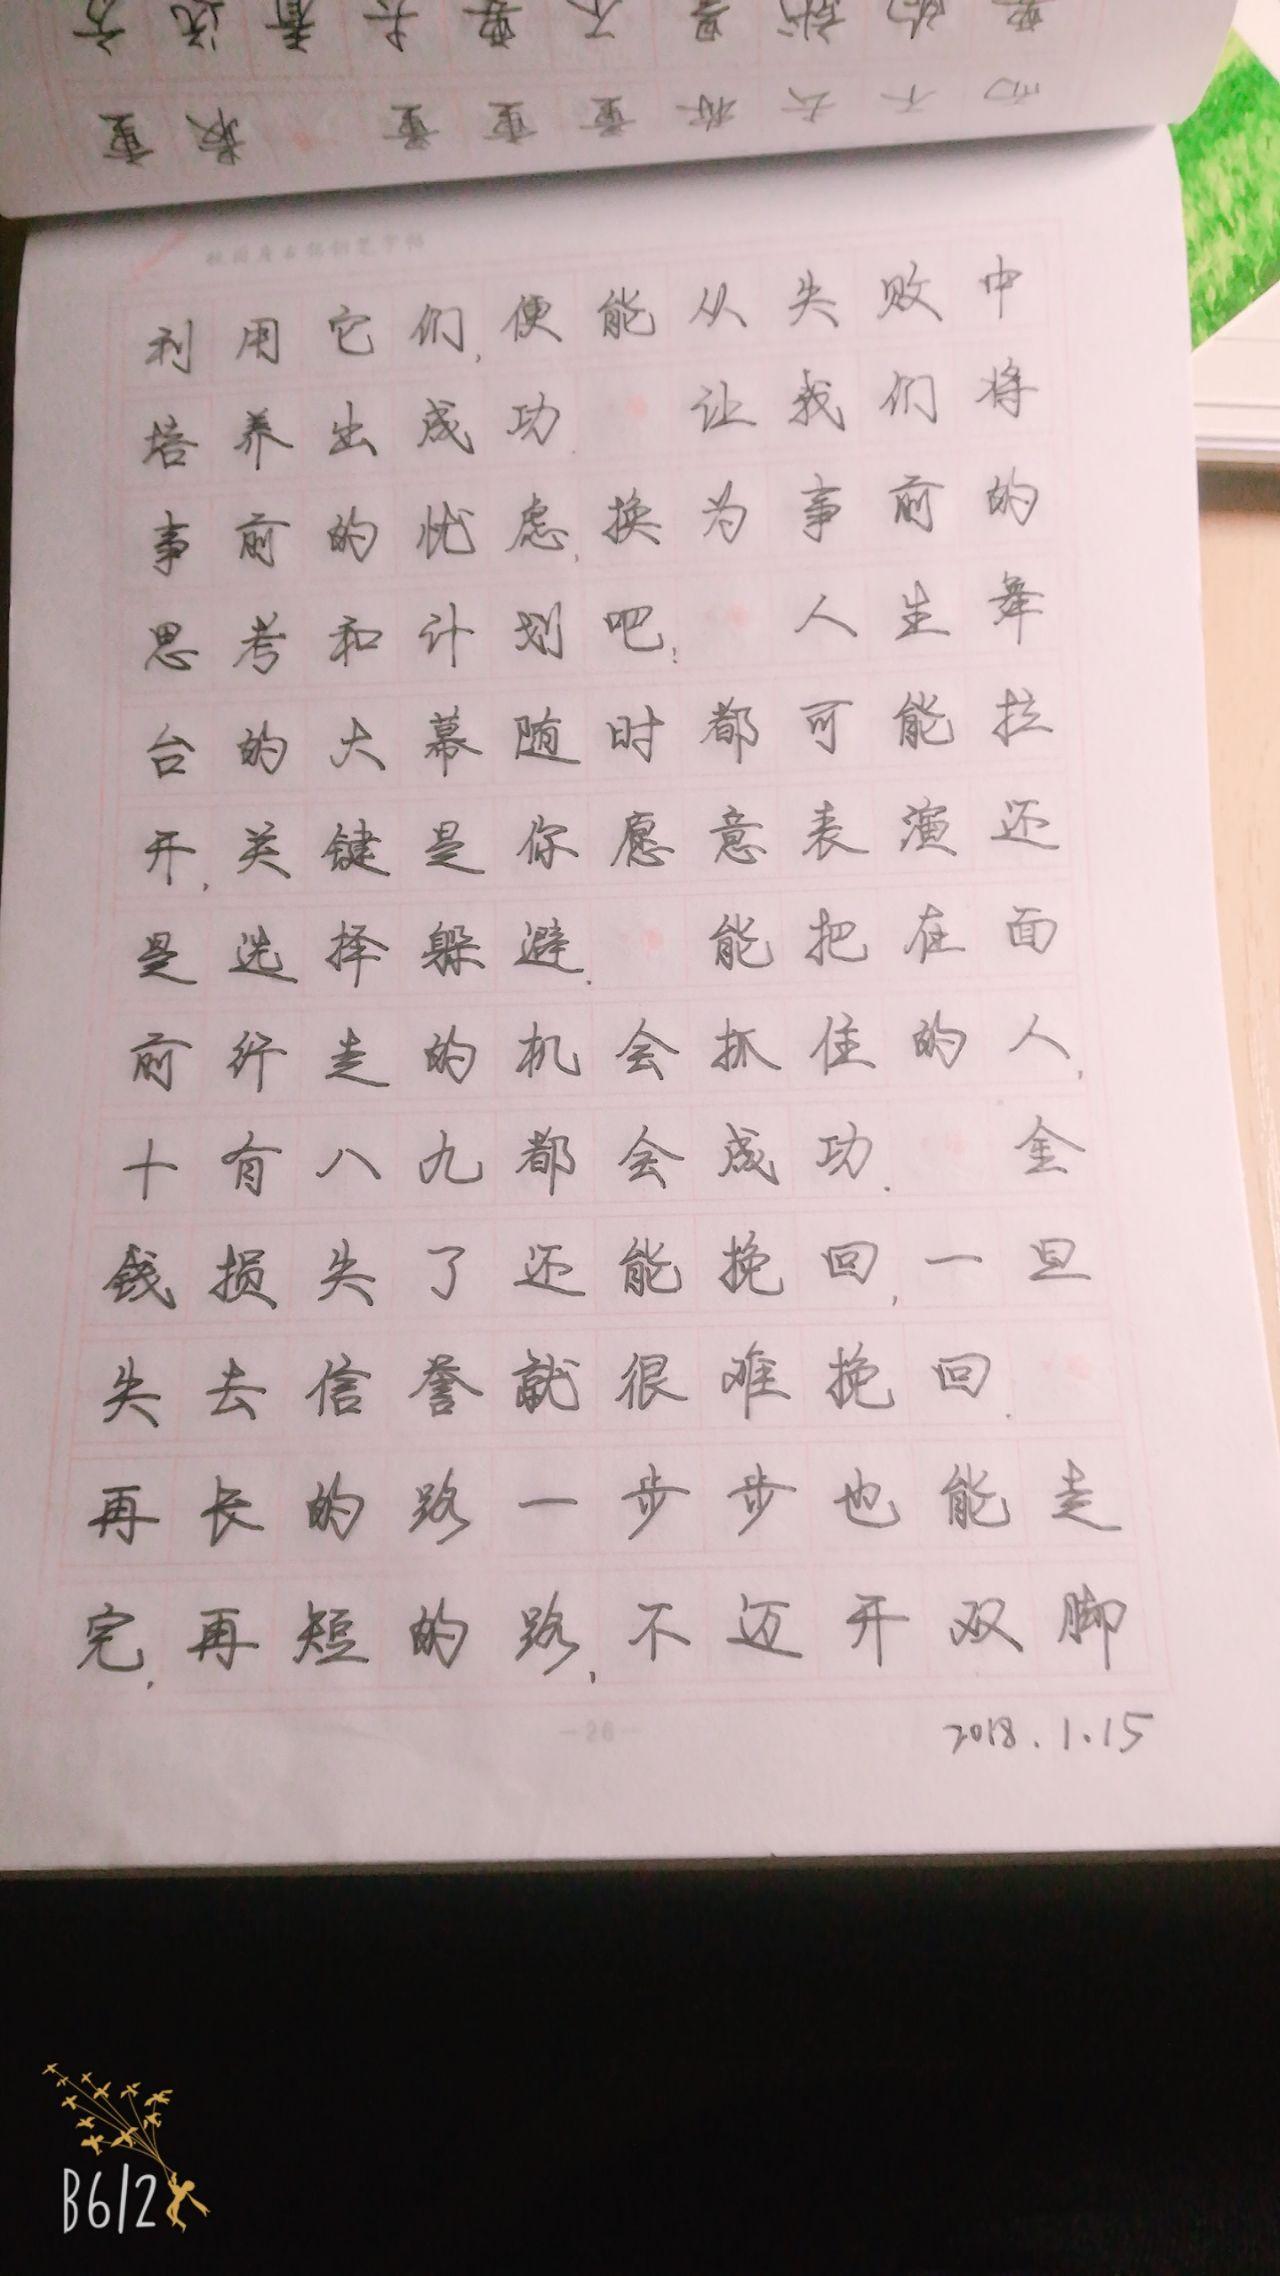 利用它们,便能从失败中
培养出成功. 让我们将
事前的忧虑,换为事前的
思考和计划吧! 人生舞
台的大幕随时都可能拉
开,关键是你愿意表演还
是选择躲避. 能把在面
前行走的机会抓住的人,
十有八九都会成功. 金
钱损失了还能挽回,一旦
失去信誉就很难挽回.
再长的路一步步也能走
完,再短的路,不迈开双脚
-26-
2018.1.15
B612